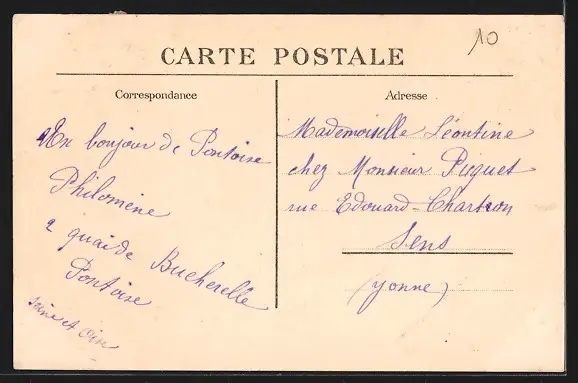 10
CARTE POSTALE
Correspondance
Un bonjour de Pontoise
Philomène
2 quai de Bucherelle
Pontoise
Seine et Oise
Adresse
Mademoiselle Léontine
chez Monsieur Piquet
rue Edouard-Chartron
Sens
(Yonne)